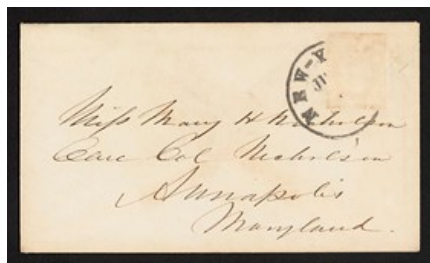 NEW-Y
Miss Mary H Nicholson
Care Col Nicholson
Annapolis
Maryland.